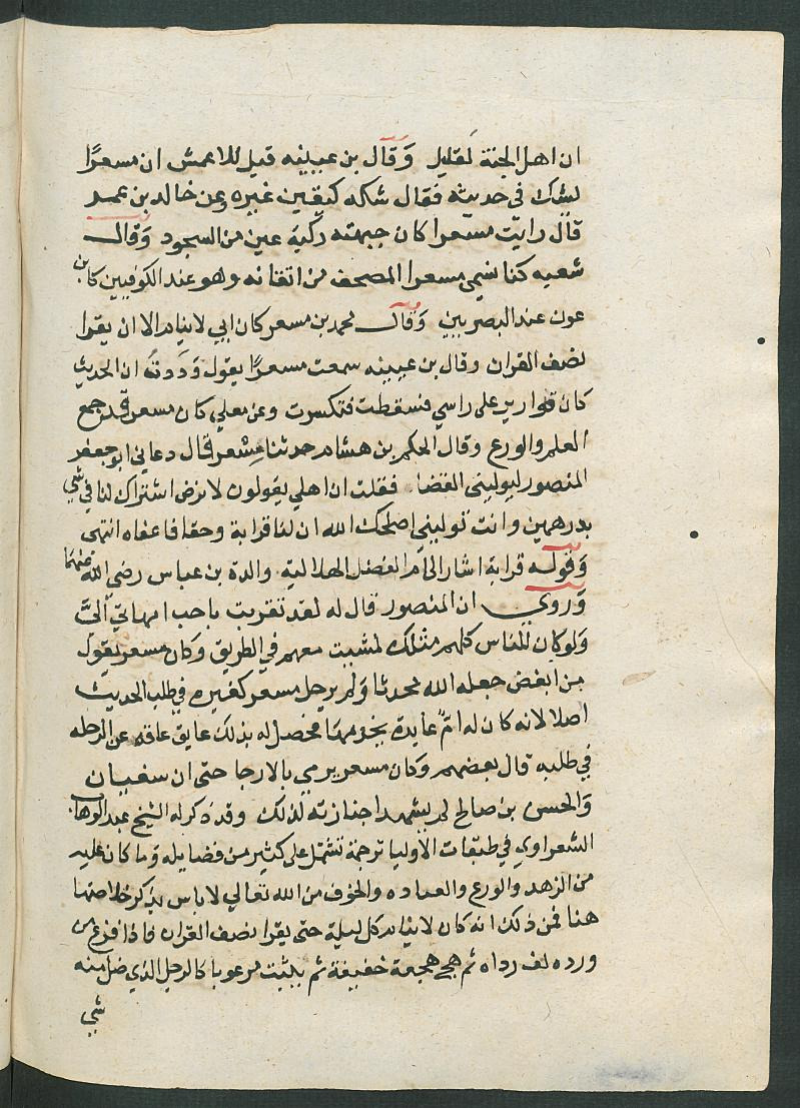 ان اهل الجنة لقليل وقال بن عيينه قيل للاعمش ان مسعرًا
يشك في حديثه فقال شكه كيقين غيره وعن خالد بن عمر
قال رايت مسعرا كان جبهته ركبة عين من السجود وقال
شعبه كنا نسمي مسعرا المصحف من اتقانه وهو عند الكوفيين كابن
عون عند البصريين وقال محمد بن مسعر كان ابي لا ينام الا ان يقرا
نصف القران وقال بن عيينه سمعت مسعرًا يقول وددت ان الحديث
كان قوارير على راسي فسقطت فتكسرت وعن معلي كان مسعر قد جمع
العلم والورع وقال الحكم بن هشام حدثنا مِسْعر قال دعاني ابو جعفر
المنصور ليوليني القضا فقلت ان اهلي يقولون لا نرض اشتراك لنا في شي
بدرهمين وانت توليني اصلحك الله ان لنا قرابة وحقا فاعفاه انتهى
وقوله قرابة اشار الى ام الفضل الهلالية والدة بن عباس رضي الله عنهما
وروي ان المنصور قال له لقد تقربت باحب امهاتي الىّ
ولو كان للناس كلهم مثلك لمشيت معهم في الطريق وكان مسعر يقول
من ابغض جعله الله محدثا ولم يرحل مسعر كغيره في طلب الحديث
اصلا لانه كان له امٌ عابدة يخدمها فحصل له بذلك عايق عاقه عن الرحله
في طلبه قال بعضهم وكان مسعر يرمي بالارجا حتى ان سفيان
والحسن بن صالح لم يشهدا جنازته لذلك وقد ذكر له الشيخ عبد الوهاب
الشعراوي في طبقات الاوليا ترجمة تشتمل على كثير من فضايله وما كان عليه
من الزهد والورع والعباده والخوف من الله تعالي لا باس بذكر خلاصتها
هنا فمن ذلك انه كان لا ينام كل ليلة حتى يقرا نصف القران فاذا فرغ من
ورده لف رداه ثم هجع هجعة خفيفة ثم يثبت مرعوبا كالرجل الذي ضل منه
شي